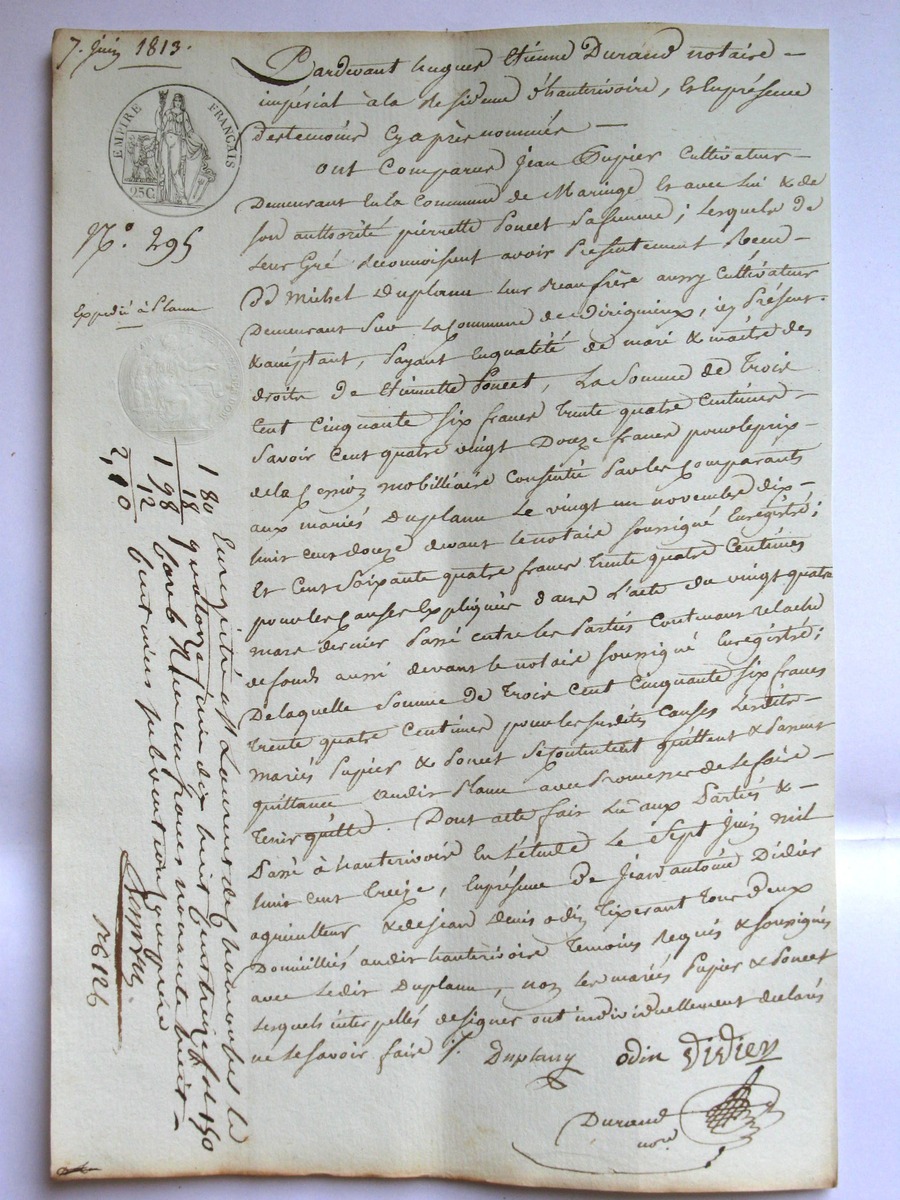 7. Juin 1813.
EMPIRE FRANÇAIS
25C
N.° 295
Expedié à Planu
Pardevant hugues Etienne Durand notaire
impérial à la Residence d'hauterivoire, Et Enprésence
Destemoins Cyaprès nommés
ont Comparu Jean Pupier Cultivateur
Demeurant En la Commune de Maringe Et avec lui & de
son authorité pierrette Poncet Safemme ; lesquels de
leur Gré Reconnoissent avoir Présentement Recu
De Michel Duplanu leur Beaufrère aussy Cultivateur
Demeurant Sur la Commune de Virigneux, icy Présent
& acceptant, payant Enqualité de mari & maitre des
droits De Etiennette Poncet, La Somme De Trois
Cent Cinquante Six francs Trente quatre Centimes
Savoir Cent quatre vingt Douze francs pour le prix
de la Cession mobilliaire Consentie Par les Comparants
aux mariés Duplanu Le vingt un novembre dix
huit Cent douze devant le notaire soussigné Enregistré ;
Et Cent Soixante quatre francs Trente quatre Centimes
pour les Causes Expliquées dans l'acte du vingt quatre
mars dernier Passé entre les Parties Contenant relache
de fonds aussi devant le notaire soussigné Enregistré ;
De laquelle Somme De Trois Cent Cinquante Six francs
Trente quatre Centimes pour les susdites Causes Lesdits
mariés Pupier & Poncet Se Contentent quittent & Passent
quittance audit Planu avec Promesse de le faire
Tenir quitte. Dont acte fait Lû aux Parties &
Passé à hauterivoire En l'étude Le Sept Juin mil
huit Cent Treize, Enprésence De Jean antoine Didier
agriculteur & de Jean Denis odin Tixerant Tous Deux
Domicilliés audit hauterivoire Temoins Requis & soussignés
avec Ledit Duplanu, non les mariés Pupier & Poncet
Lesquels interpellés designer ont individuellement declarés
ne le Savoir faire ./.
Duplany odin Didier
Durand
nore
Enregistré à St Laurent de Chamousset le
quatorze juin dix huit cent treize fol 150
francs nonante huit
1 80
18
1 98
12
2,10